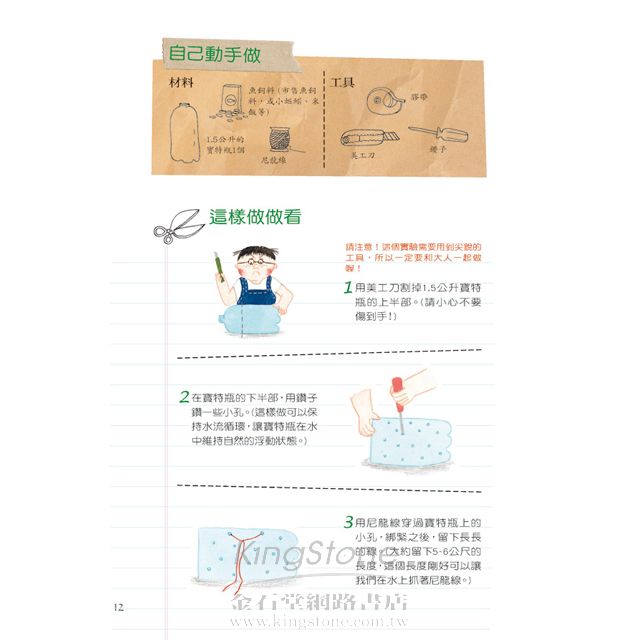 自己動手做
材料
魚飼料（市售魚飼
料，或小蚯蚓、米
飯等）
1.5公升的
寶特瓶1個
尼龍線
工具
膠帶
美工刀
鑽子
這樣做做看
請注意！這個實驗需要用到尖銳的
工具，所以一定要和大人一起做
喔！
1 用美工刀割掉1.5公升寶特
瓶的上半部。（請小心不要
傷到手！）
2 在寶特瓶的下半部，用鑽子
鑽一些小孔。（這樣做可以保
持水流循環，讓寶特瓶在水
中維持自然的浮動狀態。）
3 用尼龍線穿過寶特瓶上的
小孔，綁緊之後，留下長長
的線。（大約留下5-6公尺的
長度，這個長度剛好可以讓
我們在水上抓著尼龍線。）
KingStone
金石堂網路書店
www.kingstone.com.tw
12